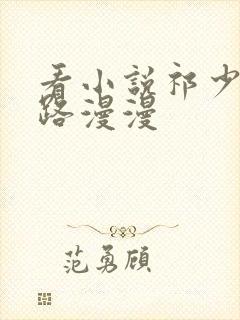 看小说祁少
路漫漫
范勇顾